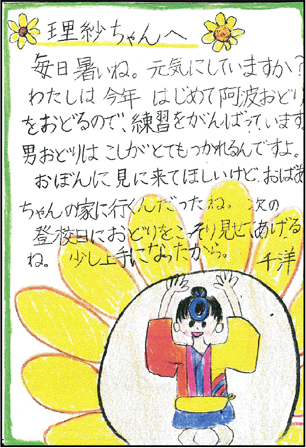 理紗ちゃんへ
毎日暑いね。元気にしていますか?
わたしは今年 はじめて阿波おどり
をおどるので、練習をがんばっています
男おどりは こしがとてもつかれるんですよ。
おぼんに見に来てほしいけど、おばあ
ちゃんの家に行くんだったね。次の
登校日におどりをこっそり見せてあげる
ね。少し上手になったから。
千洋